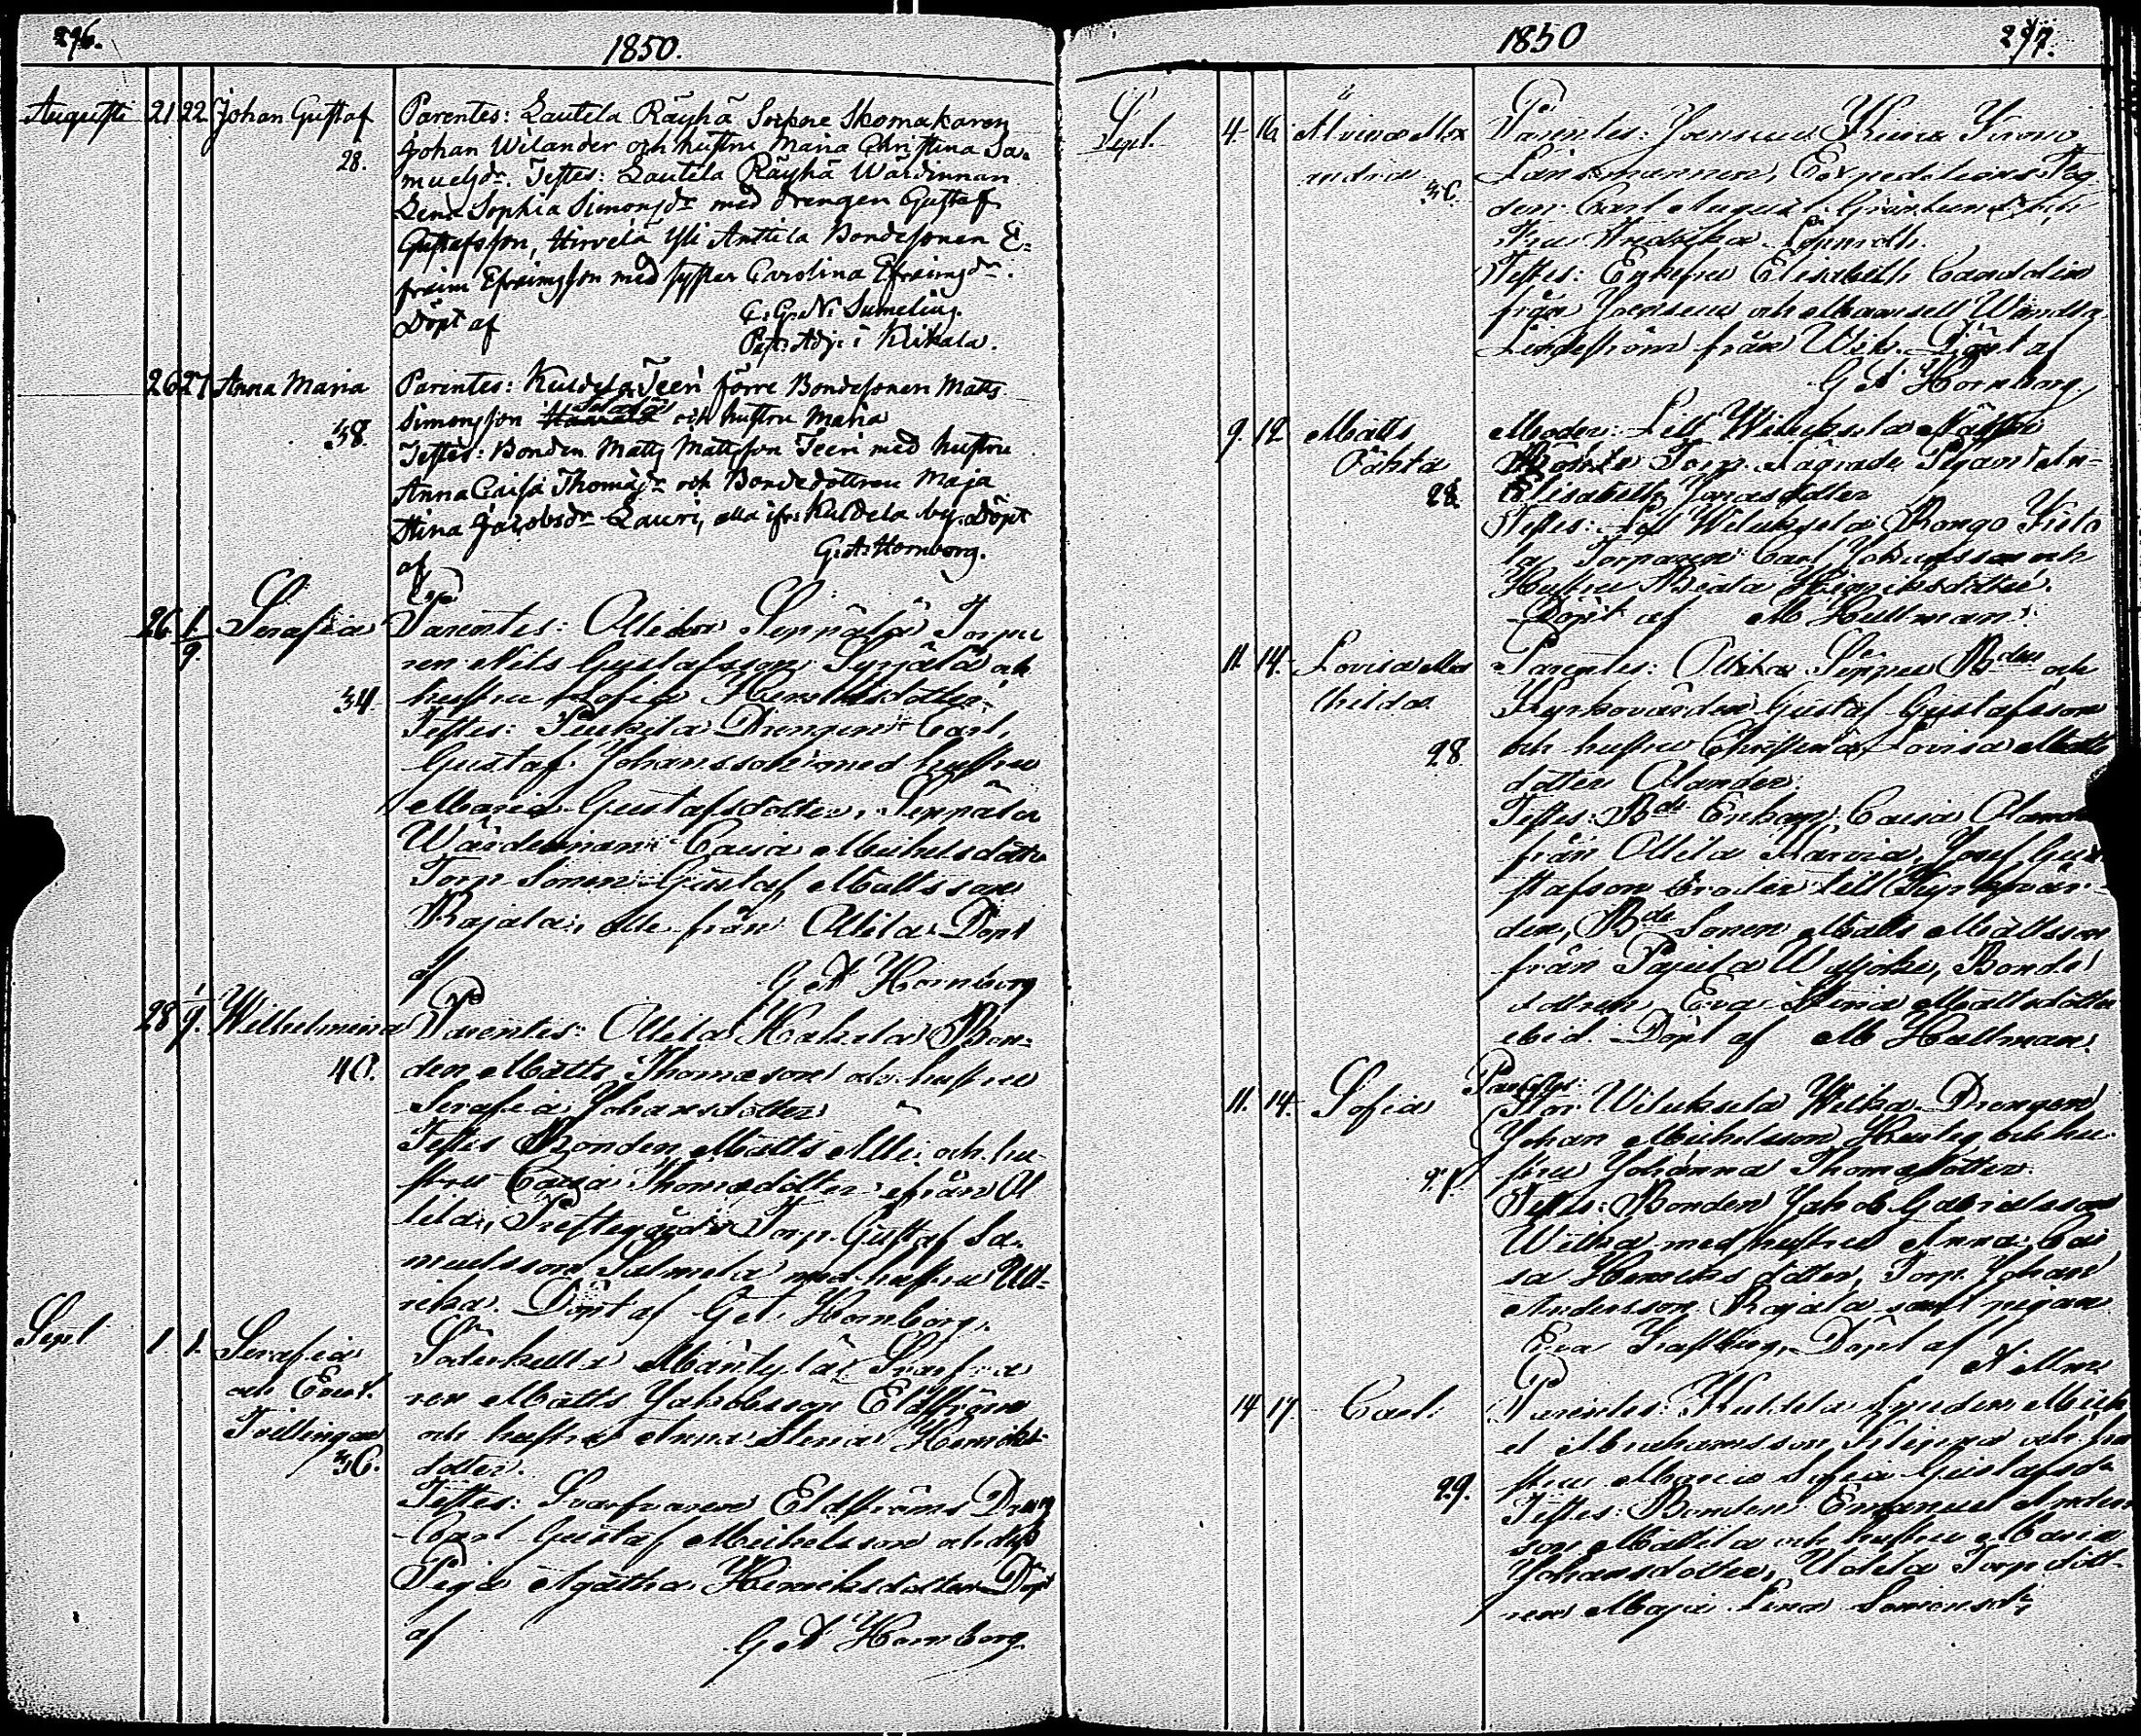 296.
1850.
Augusti 21 22 Johan Gustaf
28.
Parentes: Lautela Räyhä Sockne Skomakaren
Johan Wilander och hustru Maria Christina Sa-
muelsdr. Testes: Lautela Räyhä Wärdinnan
Lena Sophia Simonsdr med drengen Gustaf
Gustafsson, Hirvelä Yli Anttila Bondesonen E-
fraim Efraimsson med syster Carolina Efraimsdr.
Döpt af
C. G. N. Sumelius.
Past. Adj. i Kiikala.
26 27 Anna Maria
38.
Parentes: Kuldela Teeri förre Bondesonen Matts
Simonsson och hustru Maria
Testes: Bonden Matts Mattsson Teeri med hustru
Anna Caisa Thomasdr och Bondedottren Maja
Stina Jacobsdr Lauri, alla ifr. Kuldela by. Döpt
af
G. A. Hornborg.
26 1/9. Serafia
34.
Parentes: Ollila Seppälä Torpa
ren Nils Gustafsson Syrjälä och
hustru Sofia Henriksdotter
Testes: Drengen Carl
Gustaf Johansson med hustru
Maria Gustafsdotter, Seppälä
Wärdinnan Caisa Michelsdotter
Torp Sonen Gustaf Mattsson
Rajala, alle från Ollila Döpt
af
G A Hornborg
28 1/9. Wilhelmina
40.
Parentes: Ollila Hakula Bon-
den Matts Thomasson och hustru
Serafia Johansdotter
Testes Bonden Matts Alli och hu-
stru Caisa Thomasdotter ifrån Ol
lila, Prestegårds Torp. Gustaf Sa-
muelsson Salmela med hustru Ul-
rika. Döpt af G A Hornborg.
Sept 1 1. Serafia
och Ewert.
Tvillingar
36.
Söderkulla Mäntylä Svarfva
ren Matts Jakobsson Eldström
och hustru Anna Stina Henriks-
dotter.
Testes: Svarfvaren Eldströms Dreng
Carl Gustaf Michelsson och dess
Piga Agatha Henriksdotter Döpt
af
G A Hornborg
1850
297.
Sept. 4. 16. Alvina Alex
andra
36.
Parentes: Joensuu Krono
Länsmannen, Expeditions Fog
den Carl August
Fru Fredrika
Testes: Enkefru Elisabeth Candolin
från Joensuu och Mamsell Wendla
Lindström från Döpt af
G A Hornborg
9. 12 Matts
Oäkta
28.
Moder: Lill Wiluksela
Torp. Pigan
Elisabeth Jonasdotter
Testes: Lill Wiluksela
Torparen Carl och
Hustru Beata Henriksdotter.
Döpt af M Hellman.
11. 14. Lovisa Ma
thilda
28
Parentes: Ollila Bden och
Kyrkovärden Gustaf Gustafsson
och hustru Christina Lovisa Matts
dotter Olander.
Testes: Bde Enkan Caisa
från Ollila Josef Gu
stafsson broder till Kyrkovär-
den, Bde Sonen Matts Mattsson
från Pajula Bonde
dottren Eva Stina Mattsdotter
ibid. Döpt af M Hellman.
11. 14. Sofia
Parentes:
Stor Wiluksela Wilka Drengen
Johan Michelsson och hu-
stru Johanna Thomasdotter.
Testes: Bonden Jakob Gabrielsson
Wilka med hustru Anna Cai
sa Henriksdotter, Torp. Johan
Andersson Rajala samt pigan
Eva Döpt af
14 17. Carl.
29.
Parentes: Kuldela Smeden Mich
el Abrahamsson och hu
stru Maria Sofia Gustafsdr
Testes: Bonden Emanuel Anders
son Mattila och hustru Maria
Johansdotter, Torp dott-
ren Maja Lena Simonsdr